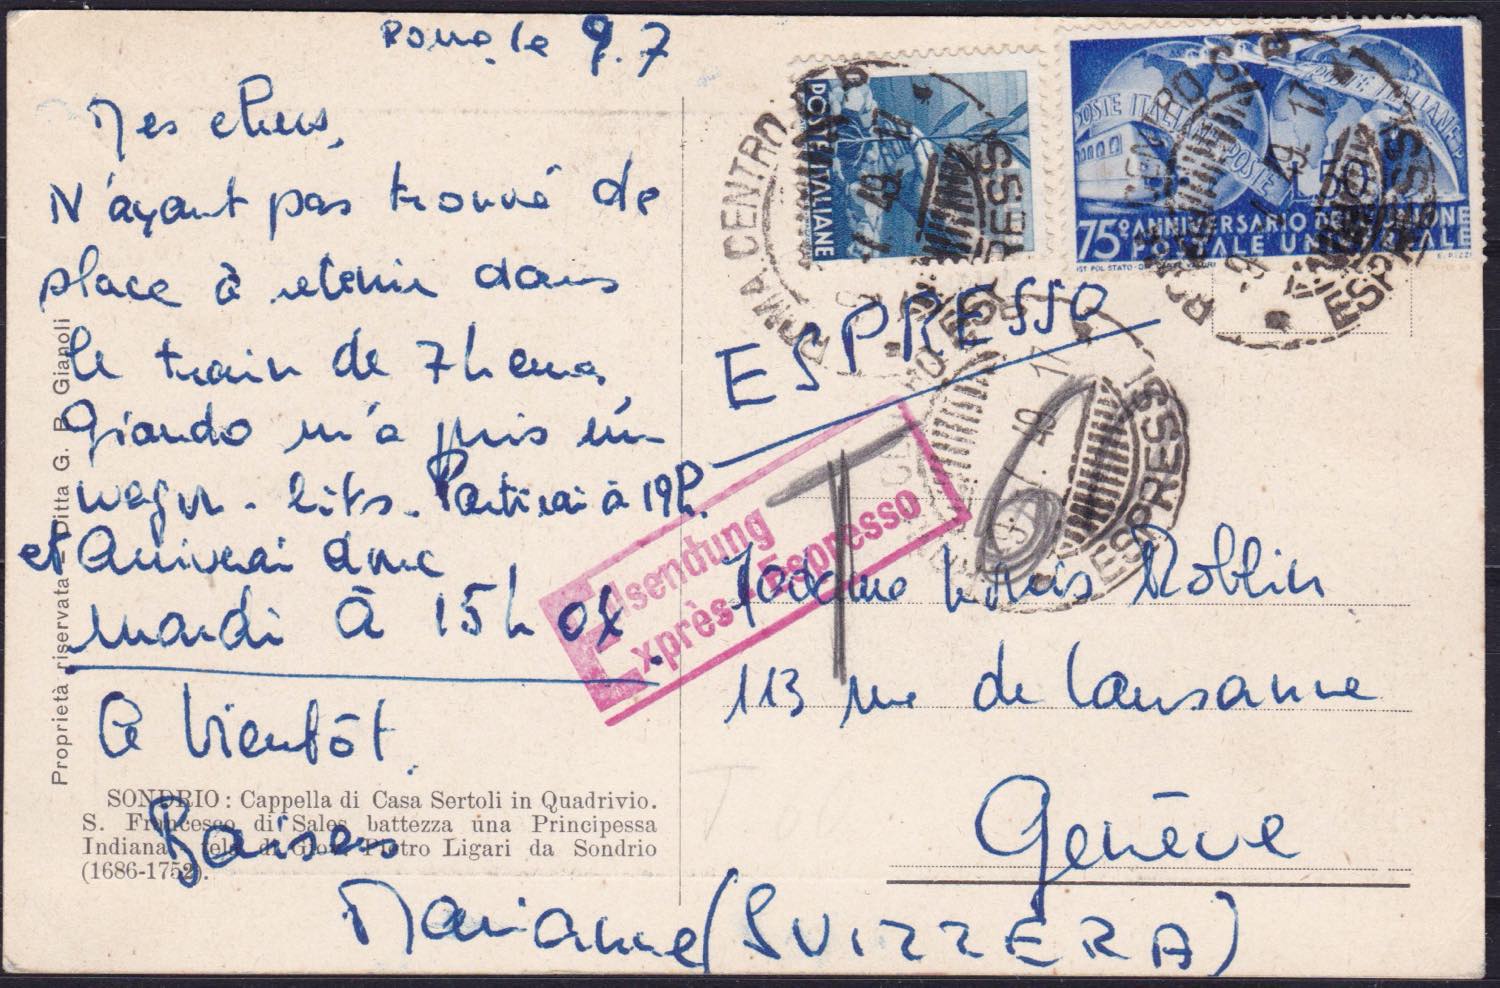 Rome le 9.7
Mes chers,
N'ayant pas trouvé de
place à retenir dans
le train de 7 heures
Giando m'a pris un
wagon-lits. Partirai à 19h.
et Arriverai donc
mardi à 15h 08.
A bientôt.
Baisers
Mariane
SONDRIO: Cappella di Casa Sertoli in Quadrivio.
S. Francesco di Sales battezza una Principessa
Indiana - tela di Giov. Pietro Ligari da Sondrio
(1686-1752).
Proprietà riservata - Ditta G. P. Gianoli
POSTE ITALIANE
POSTE ITALIANE POSTE
POSTE ITALIANE
L. 50
75º ANNIVERSARIO DELL'UNIONE
POSTALE UNIVERSALE
ROMA CENTRO
ESPRESSI
ROMA CENTRO C.P.
ESPRESSI
ESPRESSI
ESPRESSO
Eilsendung
Exprès - Espresso
T
Madame Louis Roblin
113 rue de Lausanne
Genève
(SVIZZERA)